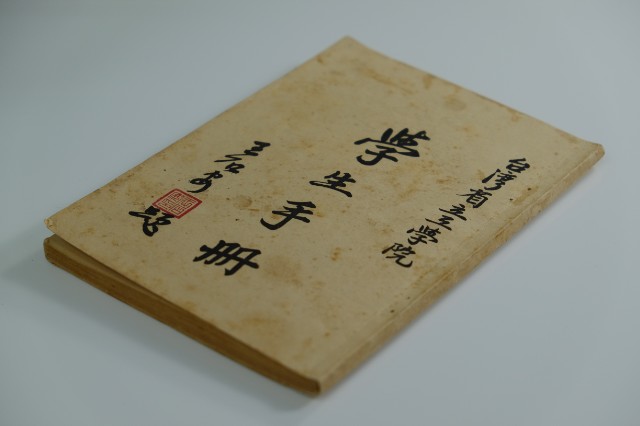 台灣省立工學院
學生手册
王石安題